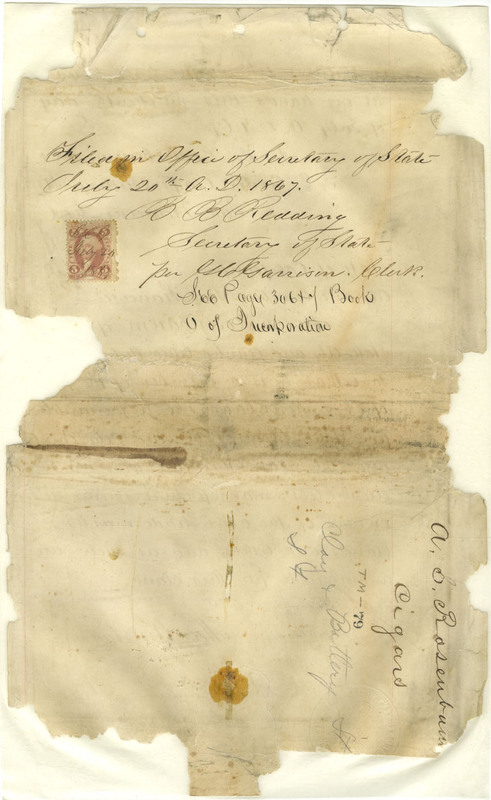 Filed in Office of Secretary of State
July 20th A.D. 1867.
B B Redding
Secretary of State
per Garrison. Clerk.
Page 306 of Book
O of Incorporation
A. S. Rosenbaum
Cigars
TM-79
Clay & Battery St
S F